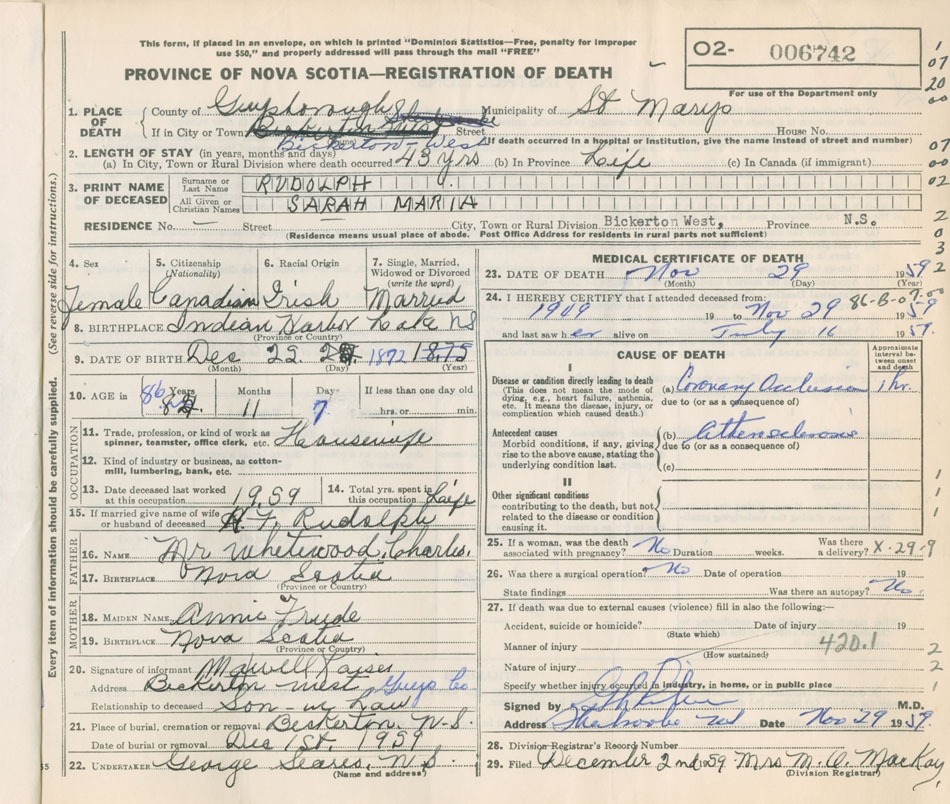 This form, if placed in an envelope, on which is printed "Dominion Statistics—Free, penalty for improper
use $50," and properly addressed will pass through the mail "FREE"
O2- 006742
For use of the Department only
PROVINCE OF NOVA SCOTIA—REGISTRATION OF DEATH
1. PLACE OF DEATH
County of Guysborough Municipality of St Marys
If in City or Town Street House No.
Bickerton-West (If death occurred in a hospital or institution, give the name instead of street and number)
2. LENGTH OF STAY (in years, months and days)
(a) In City, Town or Rural Division where death occurred 43 yrs (b) In Province Life (c) In Canada (if immigrant)
3. PRINT NAME OF DECEASED
Surname or Last Name RUDOLPH
All Given or Christian Names SARAH MARIA
RESIDENCE No. — Street City, Town or Rural Division Bickerton West, Province N.S.
(Residence means usual place of abode. Post Office Address for residents in rural parts not sufficient)
(See reverse side for instructions.)
Every item of information should be carefully supplied.
4. Sex Female
5. Citizenship (Nationality) Canadian
6. Racial Origin Irish
7. Single, Married, Widowed or Divorced (write the word) Married
8. BIRTHPLACE Indian Harbor Lake NS
(Province or Country)
9. DATE OF BIRTH Dec 22 1872 1875
(Month) (Day) (Year)
10. AGE in 86 Years 11 Months 7 Days If less than one day old
hrs. or min.
OCCUPATION
11. Trade, profession, or kind of work as spinner, teamster, office clerk, etc. Housewife
12. Kind of industry or business, as cotton-mill, lumbering, bank, etc.
13. Date deceased last worked at this occupation 1959
14. Total yrs. spent in this occupation Life
15. If married give name of wife or husband of deceased H. F. Rudolph
FATHER
16. NAME Mr Whitewood, Charles.
17. BIRTHPLACE Nova Scotia
(Province or Country)
MOTHER
18. MAIDEN NAME Annie Frude
19. BIRTHPLACE Nova Scotia
(Province or Country)
20. Signature of informant Maxwell Kaiser
Address Bickerton West Guys Co
Relationship to deceased Son-in Law
21. Place of burial, cremation or removal Bickerton N.S.
Date of burial or removal Dec 1st. 1959
22. UNDERTAKER George Seares, N.S.
(Name and address)
MEDICAL CERTIFICATE OF DEATH
23. DATE OF DEATH Nov 29 1959
(Month) (Day) (Year)
24. I HEREBY CERTIFY that I attended deceased from:
1949 19 to Nov 29 1959
and last saw her alive on July 16 1959.
CAUSE OF DEATH
Approximate interval between onset and death
I
Disease or condition directly leading to death
(This does not mean the mode of dying, e.g., heart failure, asthenia, etc. It means the disease, injury, or complication which caused death.)
(a) Coronary Occlusion 1 hr.
due to (or as a consequence of)
Antecedent causes
Morbid conditions, if any, giving rise to the above cause, stating the underlying condition last.
(b)
due to (or as a consequence of)
(c)
II
Other significant conditions
contributing to the death, but not related to the disease or condition causing it.
25. If a woman, was the death associated with pregnancy? No Duration weeks. Was there a delivery? X-29-9
26. Was there a surgical operation? No Date of operation 19
State findings Was there an autopsy? No.
27. If death was due to external causes (violence) fill in also the following:—
Accident, suicide or homicide? Date of injury 19
(State which)
Manner of injury 420.1
(How sustained)
Nature of injury
Specify whether injury occurred in industry, in home, or in public place
Signed by M.D.
Address Sherbrooke Date Nov 29 1959.
28. Division Registrar's Record Number
29. Filed December 2nd 59 Mrs M. A. MacKay
(Division Registrar)